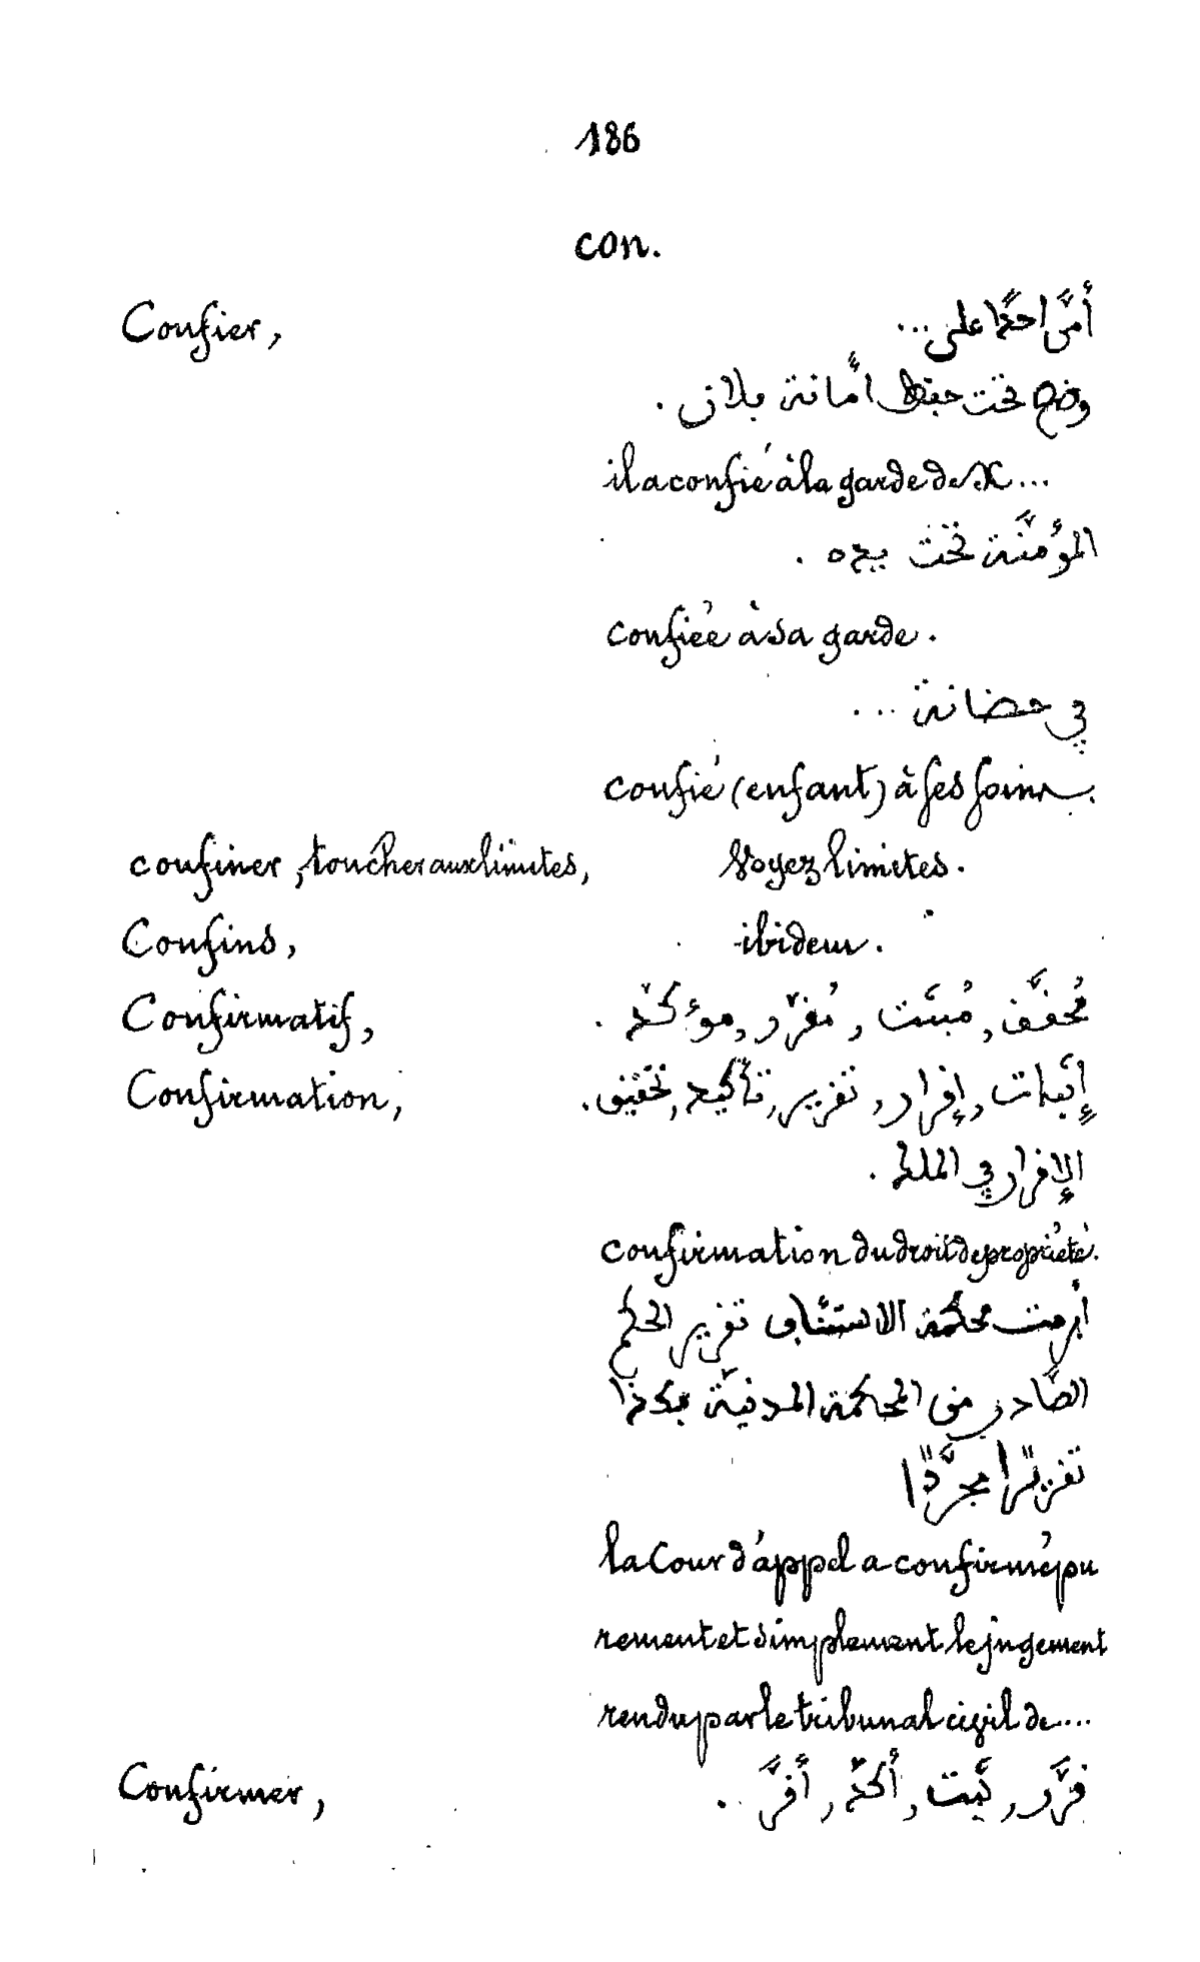 186
con.
Confier, أمّن احدًا على...
وضع تحت حفظ أمانة فلان.
il a confié à la garde de X...
المؤمَّنة تحت يده.
confiée à sa garde.
في حضانة...
confié (enfant) à ses soins.
confiner, toucher aux limites, Voyez limites.
Confins, ibidem.
Confirmatif, مُحقَّق, مُثبَّت, مُقرّر, موءكّد.
Confirmation, إثبات, إقرار, تقرير, تأكيد, تحقيق.
الإقرار في الملك.
confirmation du droit de propriété.
أبرمت محكمة الاستئناف تقرير الحكم
الصّادر من المحكمة المدنيّة بكذا
تقريرًا مجرَّدًا
la Cour d'appel a confirmé pu
rement et simplement le jugement
rendu par le tribunal civil de....
Confirmer, قرَّر, ثبَّت, أكّد, أقرَّ.